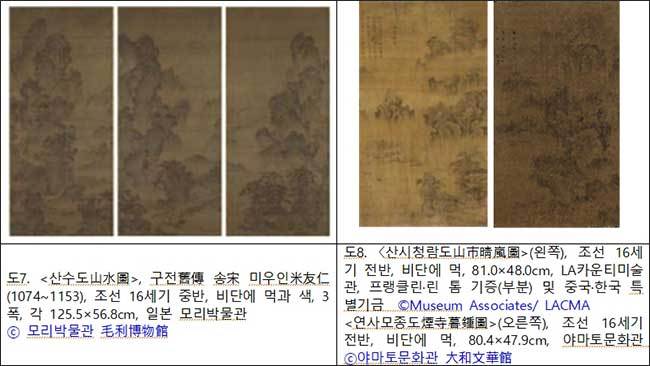 도7. <산수도山水圖>, 구전舊傳 송宋 미우인米友仁
(1074~1153), 조선 16세기 중반, 비단에 먹과 색, 3
폭, 각 125.5×56.8cm, 일본 모리박물관
ⓒ 모리박물관 毛利博物館
도8. 〈산시청람도山市晴嵐圖>(왼쪽), 조선 16세
기 전반, 비단에 먹, 81.0×48.0cm, LA카운티미술
관, 프랭클린·린 톰 기증(부분) 및 중국·한국 특
별기금 ©Museum Associates/ LACMA
<연사모종도煙寺暮鍾圖>(오른쪽), 조선 16세기
전반, 비단에 먹, 80.4×47.9cm, 야마토문화관
ⓒ야마토문화관 大和文華館